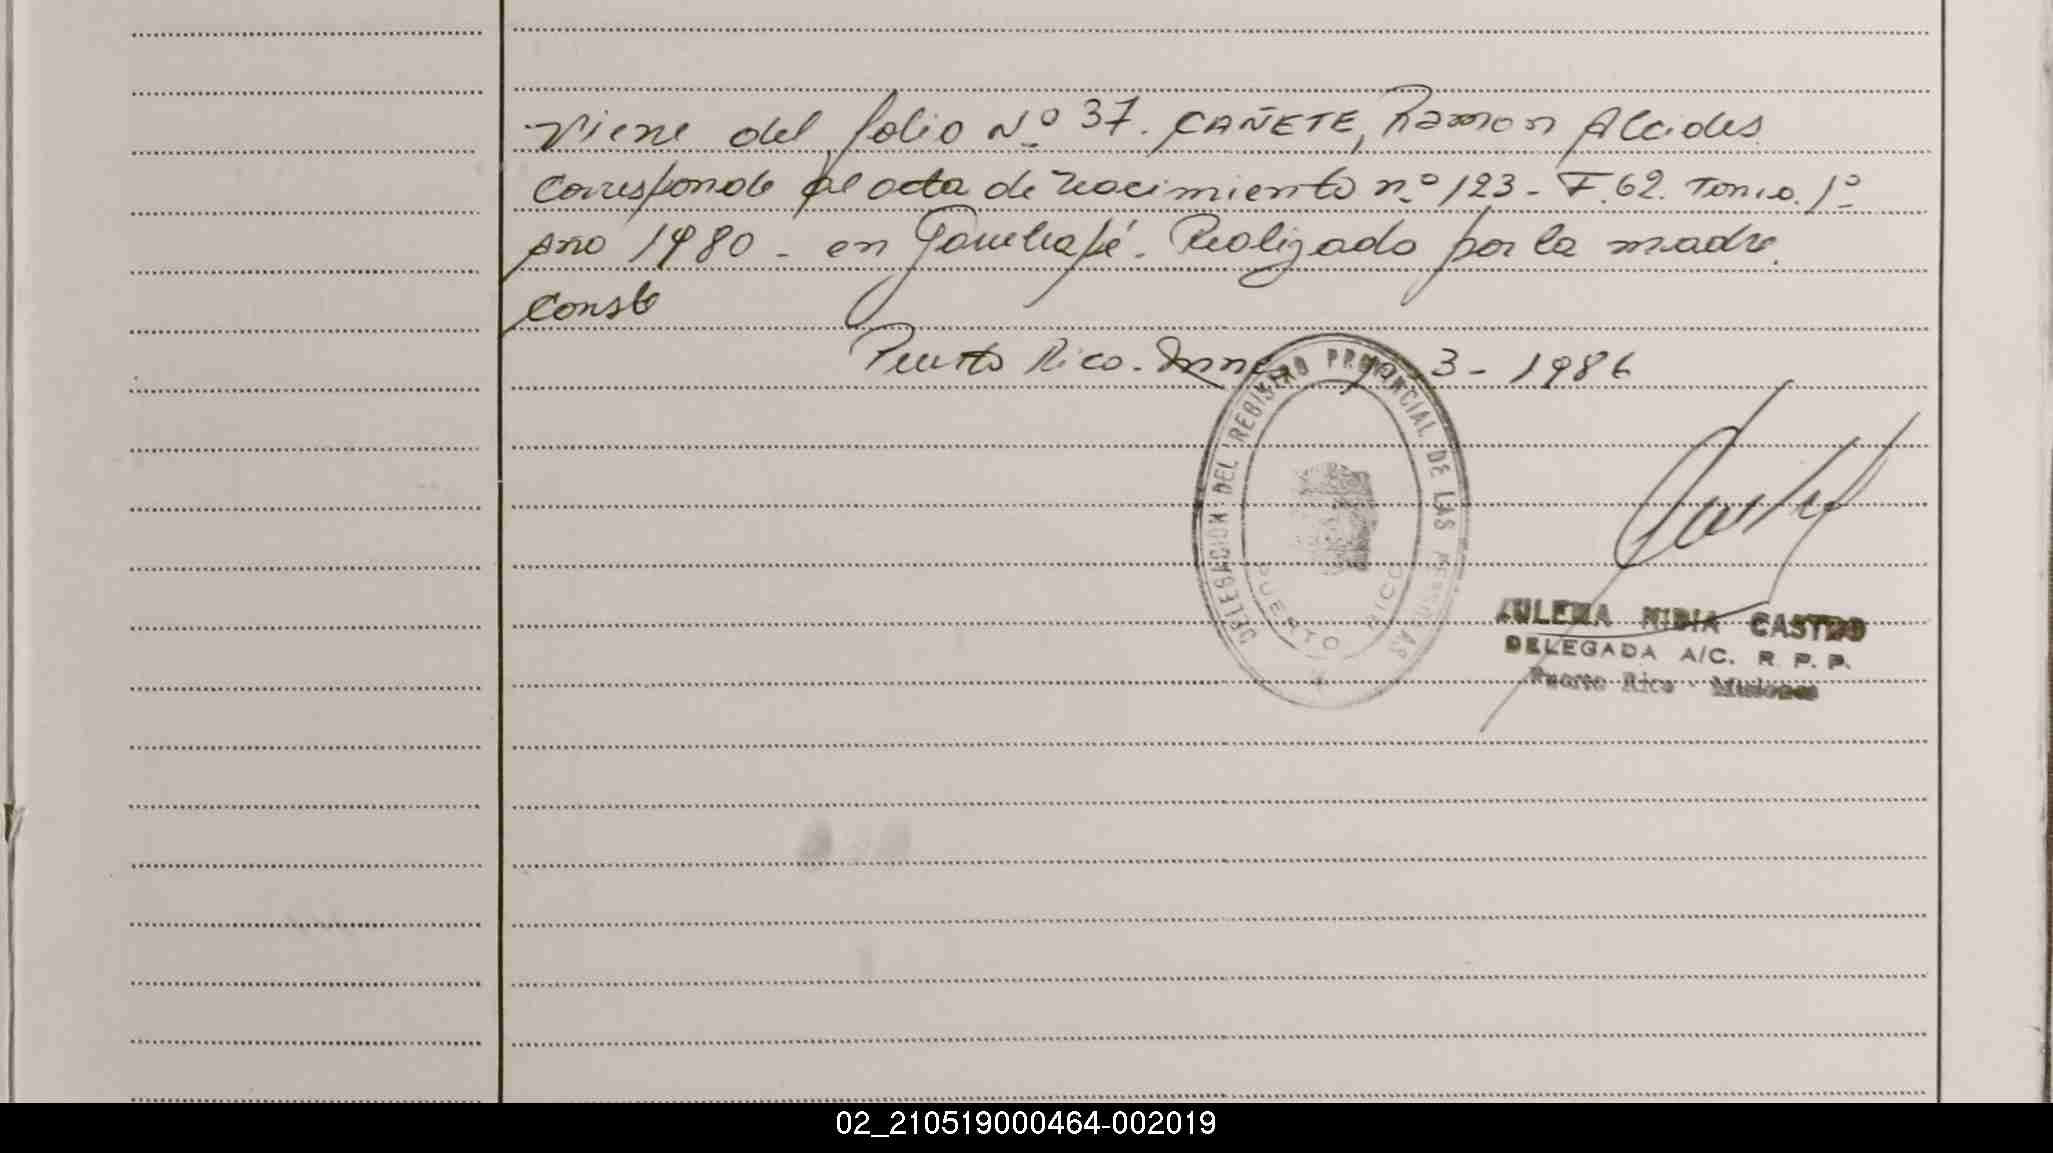 Viene del folio Nº 37. CAÑETE, Ramon Alcides.
Corresponde al acta de nacimiento nº 123 - F. 62. Tomo. 1º
Año 1980 - en Garuhapé. Realizado por la madre.
Conste
Puerto Rico. Mnes 3 - 1986
DELEGACION DEL REGISTRO PROVINCIAL DE LAS PERSONAS
PUERTO RICO
ZULEMA NIDIA CASTRO
DELEGADA A/C. R. P. P.
Puerto Rico - Misiones
02_210519000464-002019